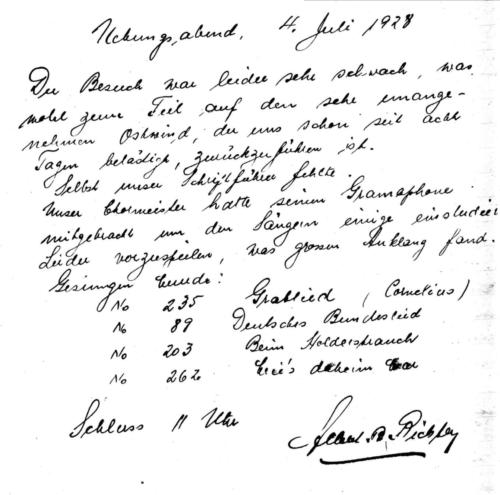 Uebungsabend, 4. Juli 1928
Der Besuch war leider sehr schwach, was
wohl zum Teil auf den sehr unange-
nehmen Ostwind, der uns schon seit acht
Tagen belästigt, zurückzuführen ist.
Selbst unser Schriftführer fehlte.
Unser Chormeister hatte seinen Gramophone
mitgebracht um den Sängern einige einstudier
Lieder vorzuspielen, was grossen Anklang fand.
Gesungen wurde:
No 235 Grablied (Cornelius)
No 89 Deutsches Bundeslied
No 203 Beim Holderstrauch
No 262 Wie's daheim war
Schluss 11 Uhr
Albert